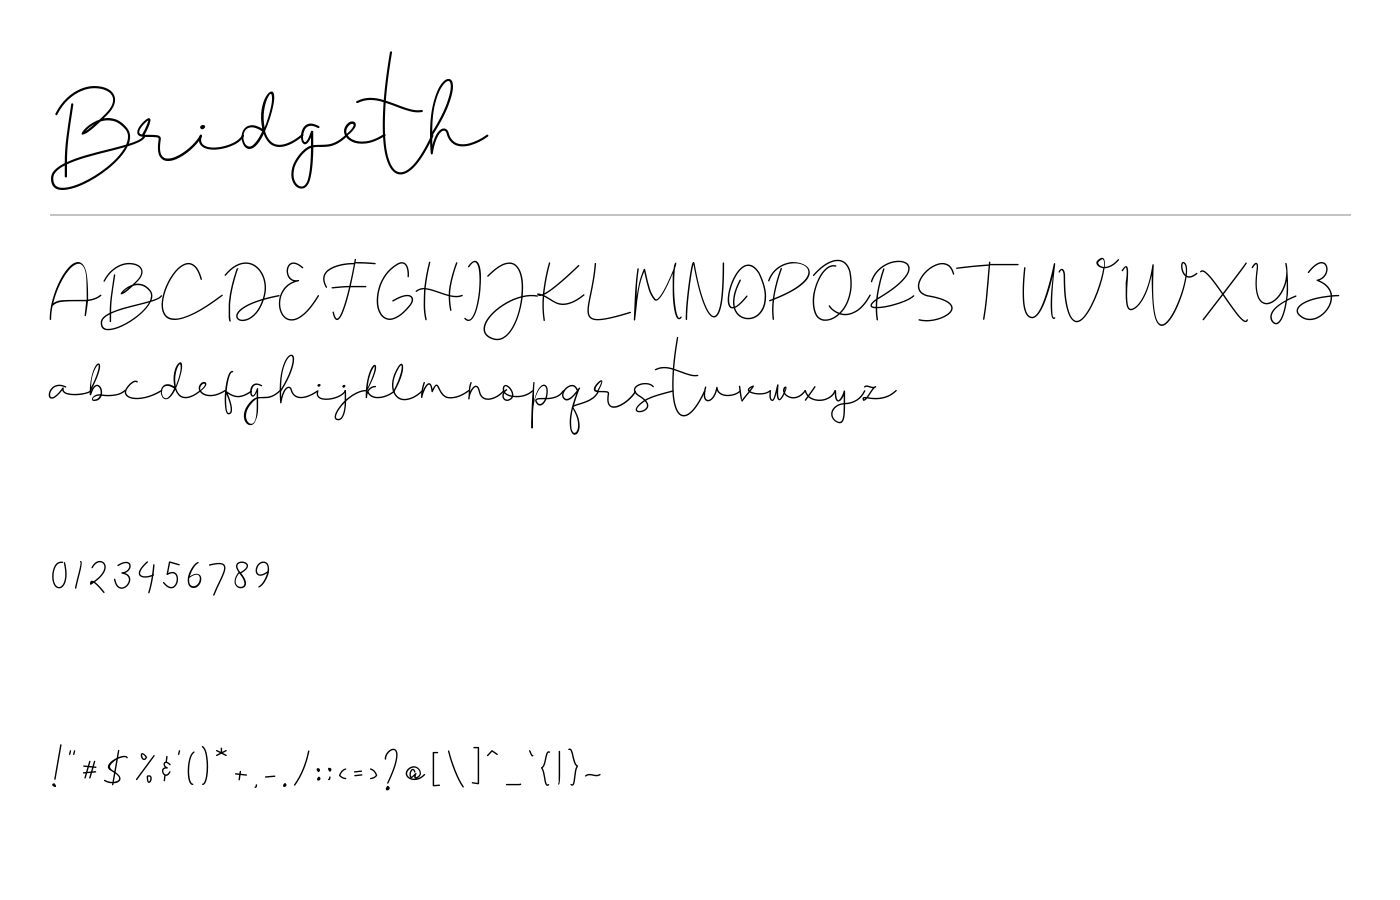 Bridgeth
ABCDEFGHIJKLMNOPQRSTUVWXYZ
abcdefghijklmnopqrstuvwxyz
0123456789
!"#$%&'()*+,-./:;<=>?@[\]^_`{|}~